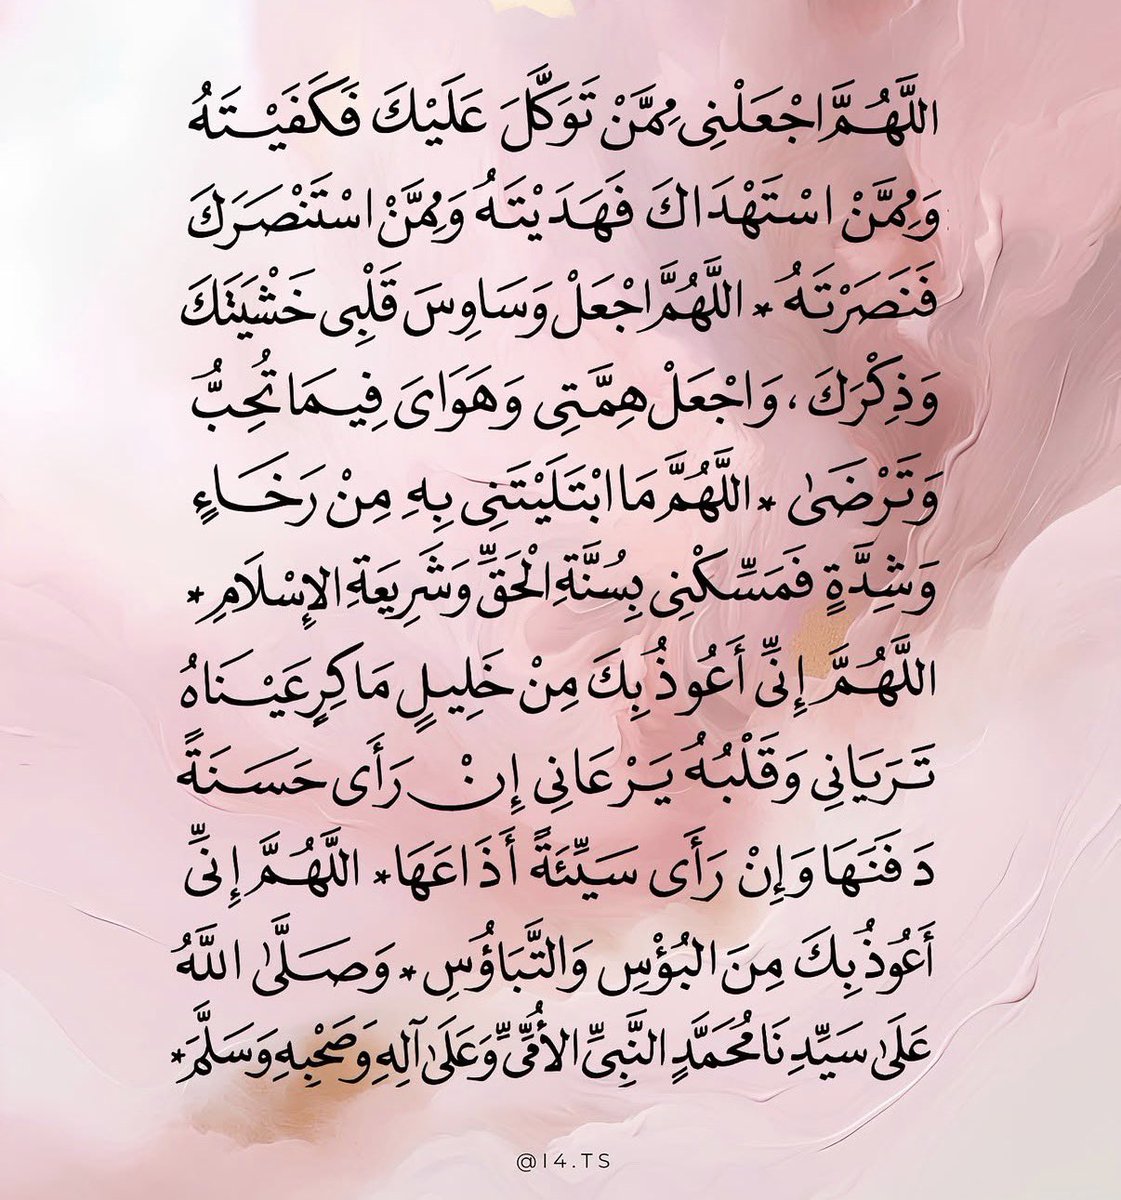 اللَّهُمَّ اجْعَلْنِى مِمَّنْ تَوَكَّلَ عَلَيْكَ فَكَفَيْتَهُ
وَمِمَّنْ اسْتَهْدَاكَ فَهَدَيْتَهُ وَمِمَّنْ اسْتَنْصَرَكَ
فَنَصَرْتَهُ * اللَّهُمَّ اجْعَلْ وَسَاوِسَ قَلْبِى خَشْيَتَكَ
وَذِكْرَكَ ، وَاجْعَلْ هِمَّتِى وَهَوَاىَ فِيمَا تُحِبُّ
وَتَرْضَىٰ * اللَّهُمَّ مَا ابْتَلَيْتَنِى بِهِ مِنْ رَخَاءٍ
وَشِدَّةٍ فَمَسِّكْنِى بِسُنَّةِ الْحَقِّ وَشَرِيعَةِ الإِسْلَامِ *
اللَّهُمَّ إِنِّى أَعُوذُ بِكَ مِنْ خَلِيلٍ مَاكِرٍ عَيْنَاهُ
تَرَيَانِى وَقَلْبُهُ يَرْعَانِى إِنْ رَأَى حَسَنَةً
دَفَنَهَا وَإِنْ رَأَى سَيِّئَةً أَذَاعَهَا * اللَّهُمَّ إِنِّى
أَعُوذُ بِكَ مِنَ البُؤْسِ وَالتَّبَاؤُسِ * وَصَلَّىٰ اللَّهُ
عَلَىٰ سَيِّدِنَا مُحَمَّدٍ النَّبِىِّ الأُمِّىِّ وَعَلَىٰ آلِهِ وَصَحْبِهِ وَسَلَّمَ *
@I4.TS